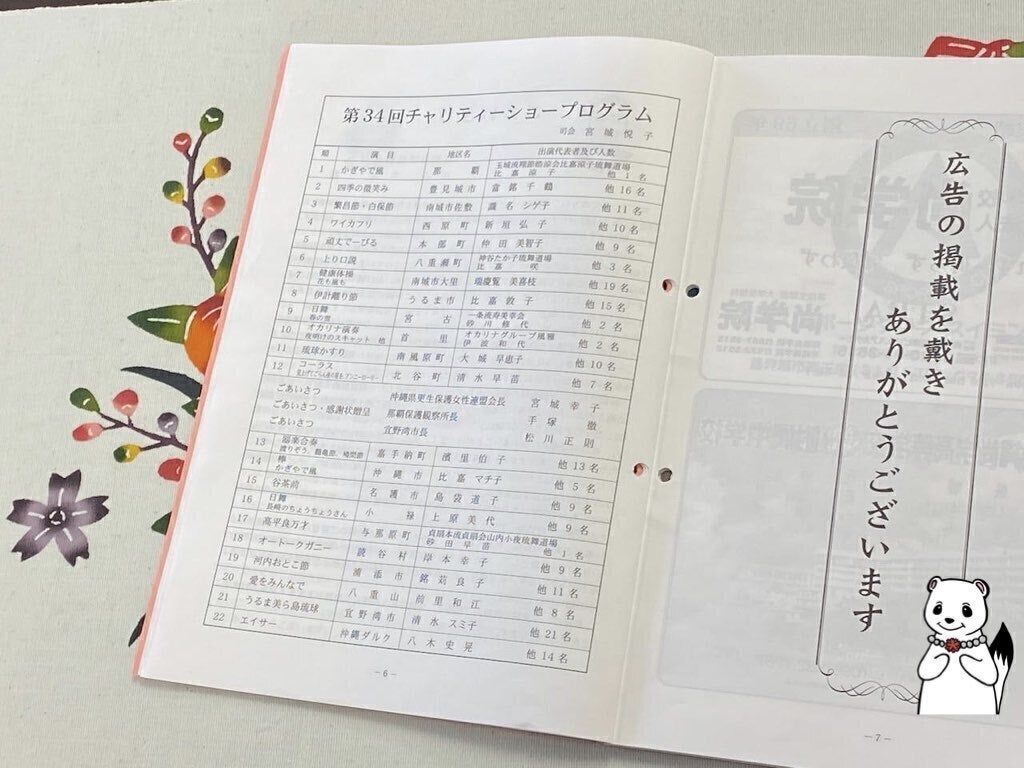 第34回チャリティーショープログラム
司会 宮城悦子
順 演目 地区名 出演代表者及び人数
1 かぎやで風 那覇 玉城流翔節皓涼会比嘉涼子琉舞道場 比嘉涼子 他1名
2 四季の微笑み 豊見城市 當銘千鶴 他16名
3 繁昌節・白保節 南城市佐敷 識名シゲ子 他11名
4 ワイカブリ 西原町 新垣弘子 他10名
5 頑丈でーびる 本部町 仲田美智子 他9名
6 上り口説 八重瀬町 神谷たか子琉舞道場 比嘉咲 他3名
7 健康体操 花も風も 南城市大里 瑞慶覧美嘉枝 他19名
8 伊計離り節 うるま市 比嘉敦子 他15名
9 日舞 春の雪 宮古 一条流寿美幸会 砂川修代 他2名
10 オカリナ演奏 夜明けのスキャット 他 首里 オカリナグループ風雅 伊波和代 他2名
11 琉球かすり 南風原町 大城早恵子 他10名
12 コーラス 北谷町 清水早苗 他7名
ごあいさつ 沖縄県更生保護女性連盟会長 宮城幸子
ごあいさつ・感謝状贈呈 那覇保護観察所長 手塚徹
ごあいさつ 宜野湾市長 松川正則
13 器楽合奏 渡りぞう、鶴亀節、鳩間節 嘉手納町 濱里伯子 他13名
14 かぎやで風 沖縄市 比嘉マチ子 他5名
15 谷茶前 名護市 島袋道子 他9名
16 日舞 長崎のちょうちょうさん 小禄 上原美代 他9名
17 高平良万才 与那原町 貞扇本流貞扇会山内小夜琉舞道場 砂田早苗 他1名
18 オートークガニー 読谷村 岸本幸子 他9名
19 河内おとこ節 浦添市 銘苅良子 他11名
20 愛をみんなで 八重山 前里和江 他8名
21 うるま美ら島琉球 宜野湾市 清水スミ子 他21名
22 エイサー 沖縄ダルク 八木史晃 他14名
－6－
広告の掲載を戴き
ありがとうございます
－7－